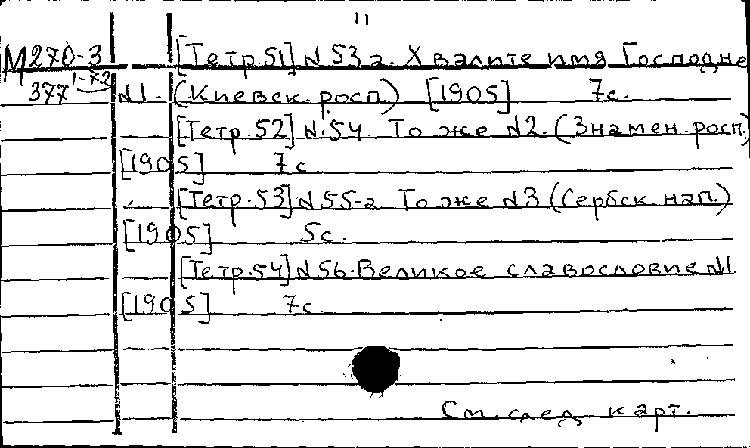 11
М270-3 [Тетр.51] № 53а. Хвалите имя Господне
1-72
377 №1. (Киевск. росп.) [1905] 7с.
[Тетр.52] № 54. То же №2. (Знамен. росп.)
[1905] 7с
[Тетр.53] № 55-а То же №3 (Сербск. нап.)
[1905] 5с.
[Тетр.54] № 56. Великое славословие №1.
[1905] 7с
См. след. карт.